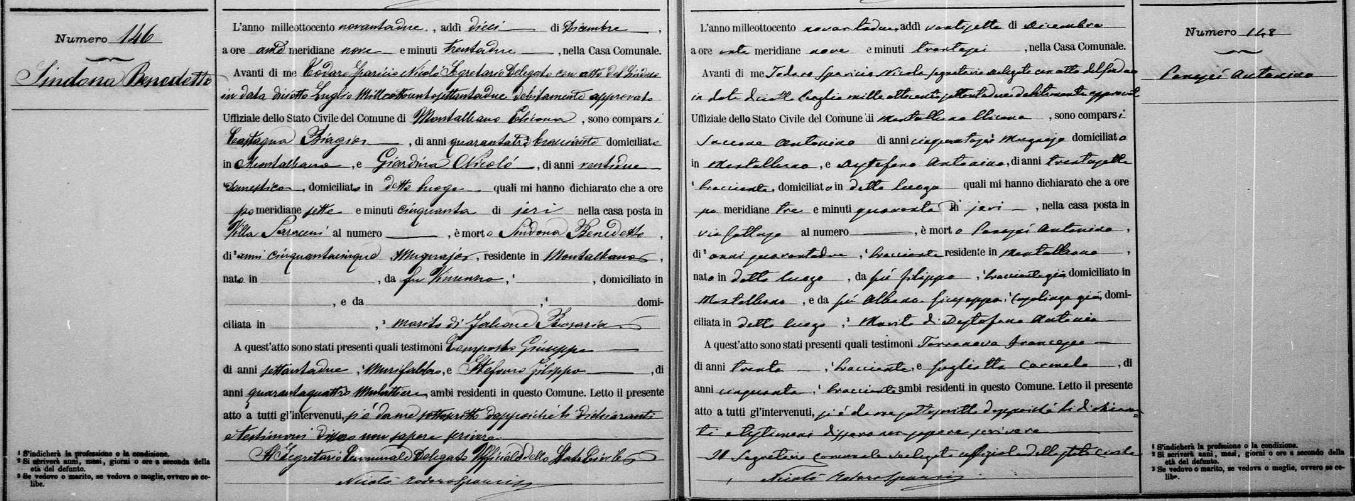 Numero 146
Sindona Benedetto
L'anno milleottocento novantadue, addì dieci di Dicembre
a ore anti meridiane nove e minuti trentadue, nella Casa Comunale.
Avanti di me Todaro Sparicio Nicolò Segretario Delegato con atto del Sindaco
in data diciotto Luglio Milleottocentosettantadue debitamente approvato
Uffiziale dello Stato Civile del Comune di Montalbano Elicona, sono comparsi
Castagna Biagio, di anni quarantatre bracciante domiciliato
in Montalbano, e Giardina Nicolò, di anni ventidue
domestico, domiciliato in detto luogo quali mi hanno dichiarato che a ore
po meridiane sette e minuti cinquanta di jeri nella casa posta in
Villa Saraceni al numero, è morto Sindona Benedetto,
di anni cinquantacinque, residente in Montalbano,
nato in, da fu Vincenzo; domiciliato in
, e da; domi-
ciliata in; marito di
A quest'atto sono stati presenti quali testimoni Composto Giuseppe
di anni settantadue, Murifabbro, e Stefano Filippo, di
anni quarantaquattro Mulattiere, ambi residenti in questo Comune. Letto il presente
atto a tutti gl'intervenuti, si è da me sottoscritto dapposiché li dichiaranti
e testimoni dissero non sapere scrivere
Il Segretario Comunale Delegato Uffiziale dello Stato Civile
Nicolò Todaro Sparicio
¹ S'indicherà la professione o la condizione.
² Si scriverà anni, mesi, giorni o ore a seconda della
età del defunto.
³ Se vedovo o marito, se vedova o moglie, ovvero se ce-
libe.
L'anno milleottocento novantadue, addì ventisette di Dicembre
a ore anti meridiane nove e minuti trentasei, nella Casa Comunale.
Avanti di me Todaro Sparicio Nicolò segretario delegato con atto del Sindaco
in data diciotto Luglio mille ottocento settantadue debitamente approvato
Uffiziale dello Stato Civile del Comune di Montalbano Elicona, sono comparsi
Saccone Antonino di anni cinquantasei domiciliato
in Montalbano, e Distefano Antonino, di anni trentasette
bracciante, domiciliato in detto luogo quali mi hanno dichiarato che a ore
po meridiane tre e minuti quaranta di jeri, nella casa posta in
via al numero, è morto Antonino,
di anni quarantadue, bracciante residente in Montalbano,
nato in detto luogo, da fu Filippo, bracciante già domiciliato in
Montalbano, e da fu Giuseppa, già domi-
ciliata in detto luogo; Marito di Distefano Antonia
A quest'atto sono stati presenti quali testimoni Terranova Francesco
di anni trenta, bracciante, e Carmelo, di
anni cinquanta, bracciante ambi residenti in questo Comune. Letto il presente
atto a tutti gl'intervenuti, si è da me sottoscritto dapposiché li dichiaran
ti e testimoni dissero non sapere scrivere
Il Segretario comunale delegato uffiziale dello stato civile
Nicolò Todaro Sparicio
Numero 148
Antonino
¹ S'indicherà la professione o la condizione.
² Si scriverà anni, mesi, giorni o ore a seconda della
età del defunto.
³ Se vedovo o marito, se vedova o moglie, ovvero se ce-
libe.